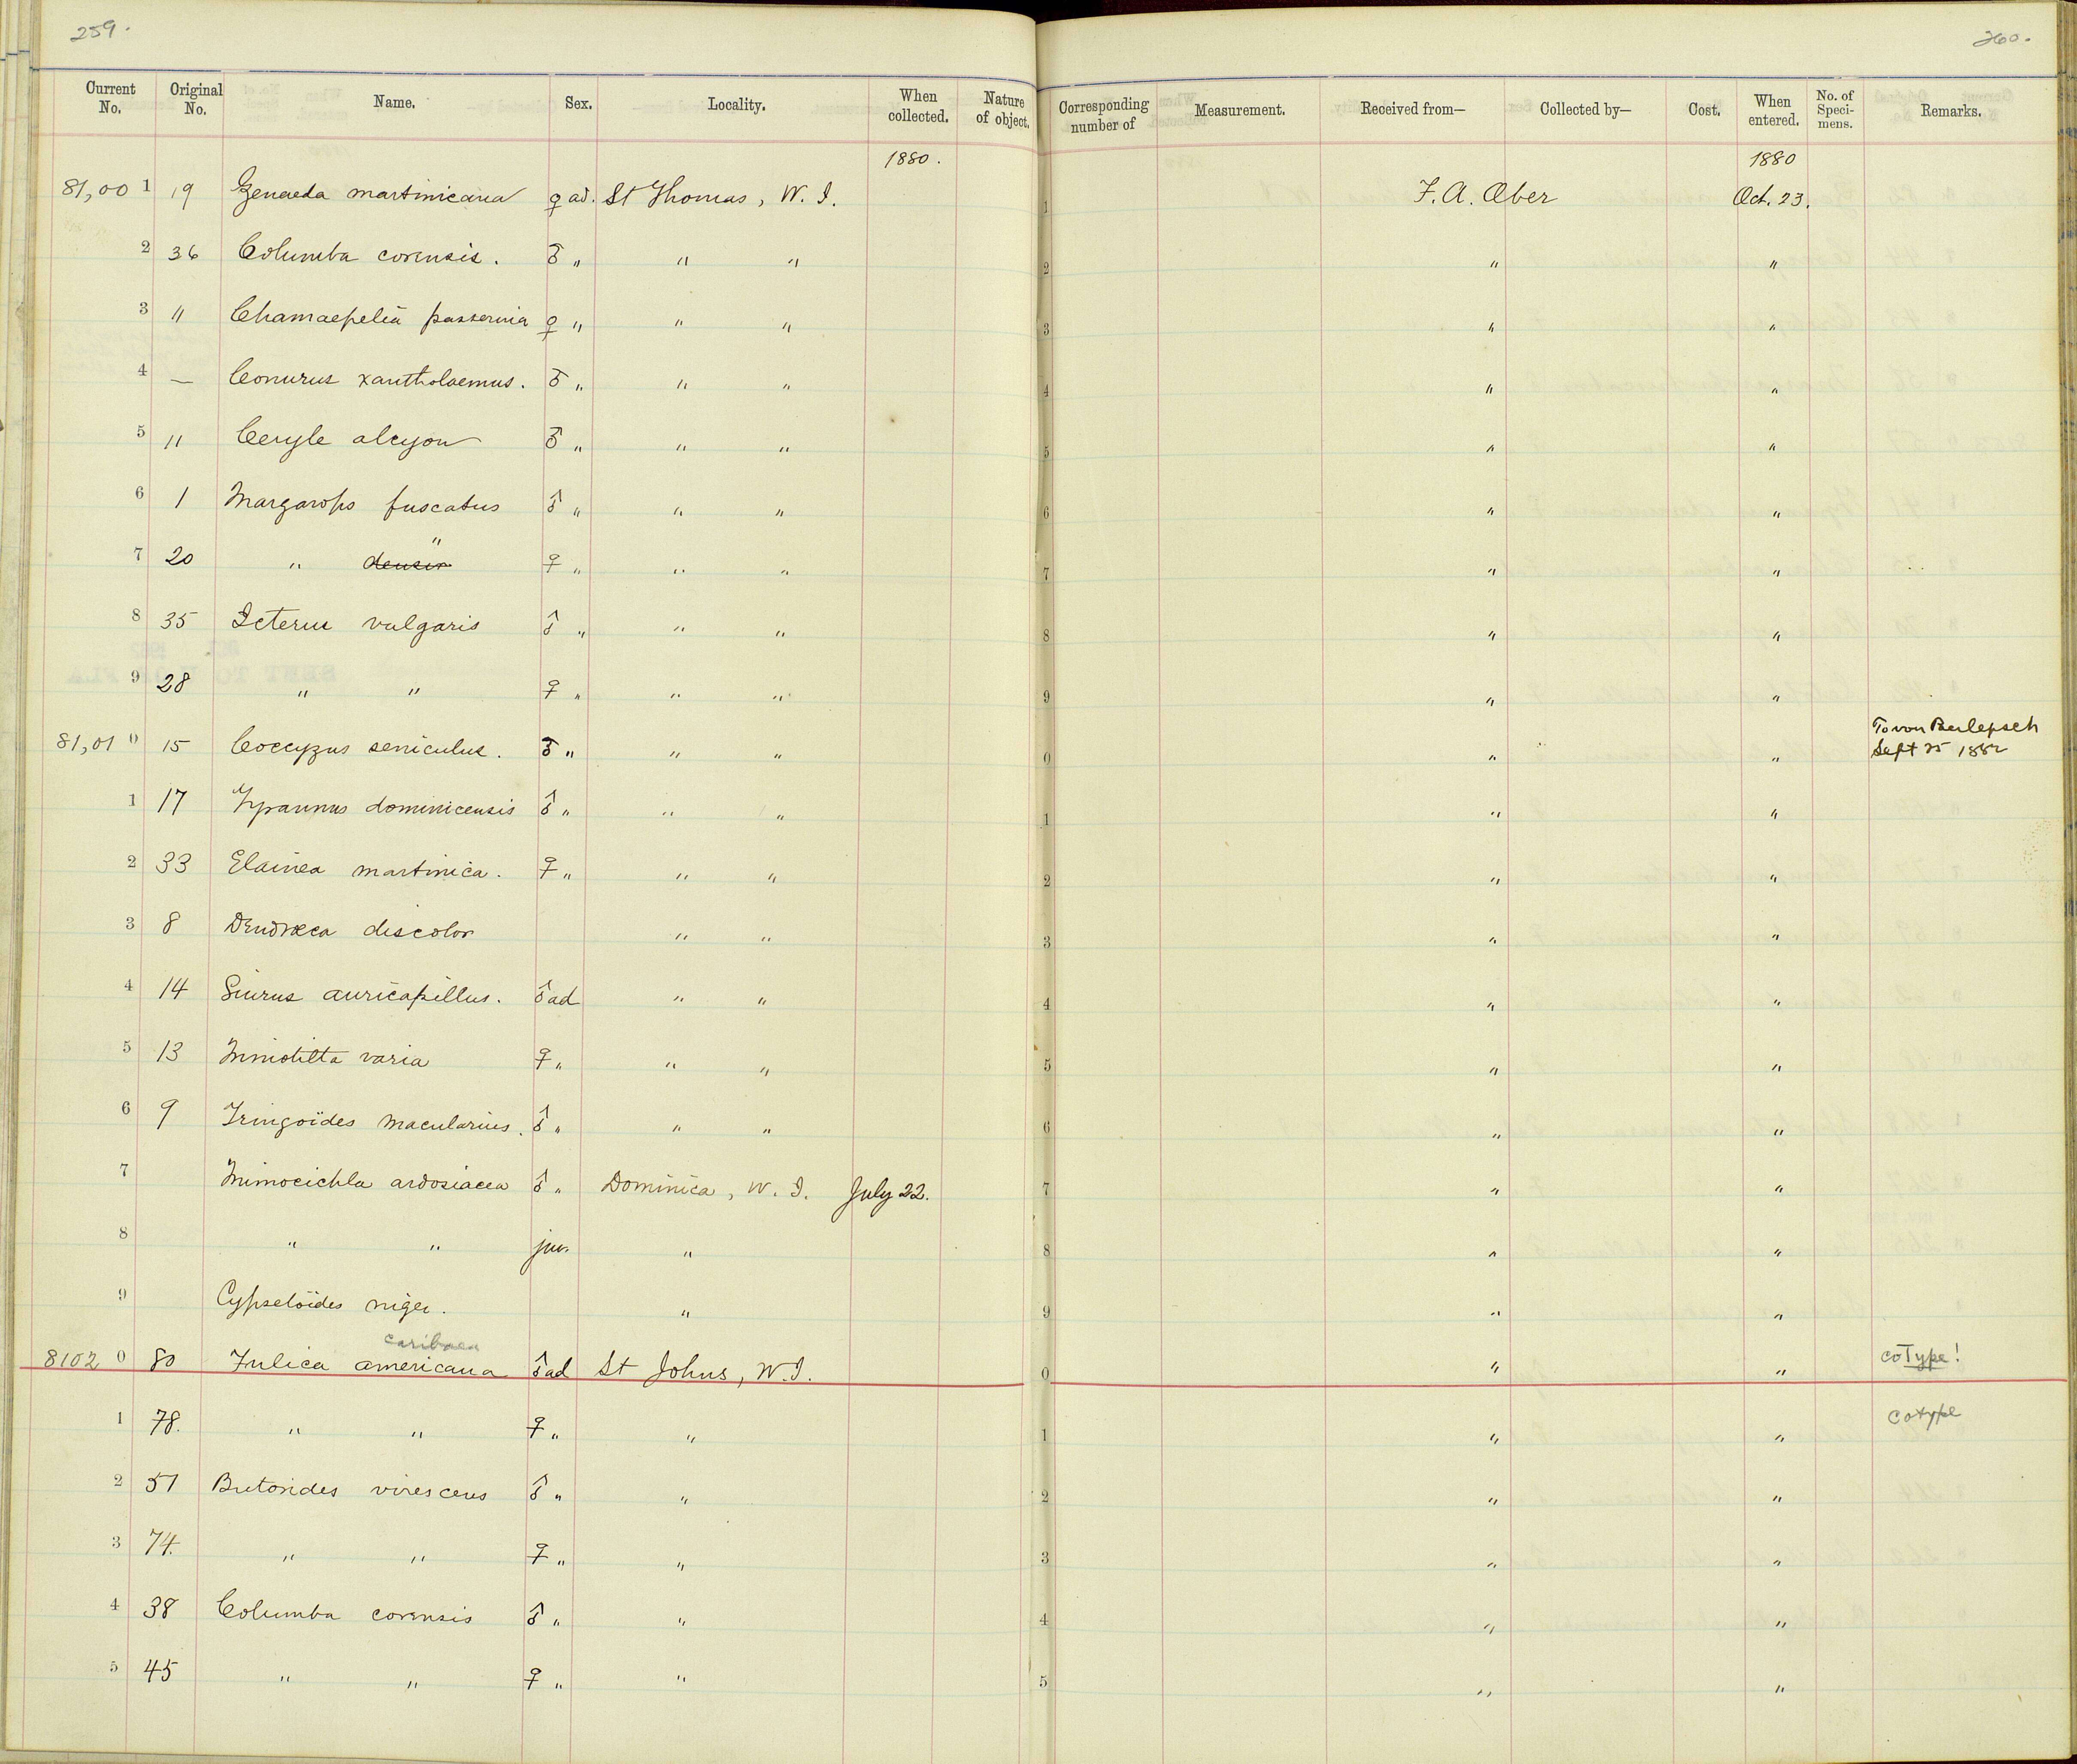 259.
260.
Current No. Original No. Name. Sex. Locality. When collected. Nature of object. Corresponding number of Measurement. Received from— Collected by— Cost. When entered. No. of Speci-mens. Remarks.
1880. 1880
81,00 1 19 Zenaeda martinicana ♀ ad. St Thomas, W. I. 1 F. A. Ober Oct. 23.
2 36 Columba corensis. ♂ " " " 2 " "
3 " Chamaepelia passerina ♀ " " " 3 " "
4 — Conurus xantholaemus. ♂ " " " 4 " "
5 " Ceryle alcyon ♂ " " " 5 " "
6 1 Margarops fuscatus ♂ " " " 6 " "
7 20 " " ♀ " " " 7 " "
8 35 Icterus vulgaris ♂ " " " 8 " "
9 28 " " ♀ " " " 9 " "
81,01 0 15 Coccyzus seniculus. ♂ " " " 0 " " To von Berlepsch Sept 25 1882
1 17 Tyrannus dominicensis ♂ " " " 1 " "
2 33 Elainea martinica. ♀ " " " 2 " "
3 8 Dendræca discolor " " 3 " "
4 14 Siurus auricapillus. ♂ ad " " 4 " "
5 13 Mniotilta varia ♀ " " " 5 " "
6 9 Tringoïdes macularius. ♂ " " " 6 " "
7 Mimocichla ardosiacea ♂ " Dominica, W. I. July 22. 7 " "
8 " " juv. " 8 " "
9 Cypseloïdes niger. " 9 " "
caribaea
8102 0 80 Fulica americana ♂ ad St Johns, W. I. 0 " " coType!
1 78. " " ♀ " " 1 " " Cotype
2 51 Butorides virescens ♂ " " 2 " "
3 74. " " ♀ " " 3 " "
4 38 Columba corensis ♂ " " 4 " "
5 45 " " ♀ " " 5 " "